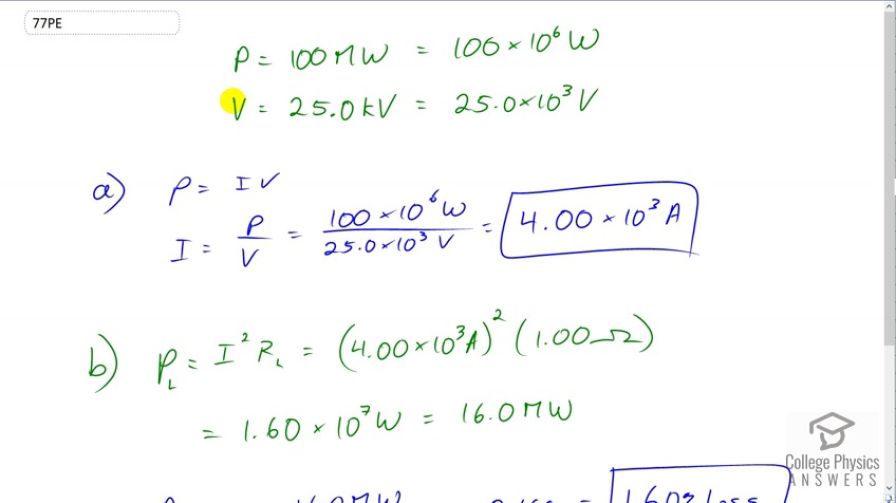 77PE
P = 100 MW = 100 × 10⁶ W
V = 25.0 kV = 25.0 × 10³ V
a) P = IV
I = P/V = 100 × 10⁶ W / 25.0 × 10³ V = 4.00 × 10³ A
b) P_L = I² R_L = (4.00 × 10³ A)² (1.00 Ω)
= 1.60 × 10⁷ W = 16.0 MW
College Physics
ANSWERS